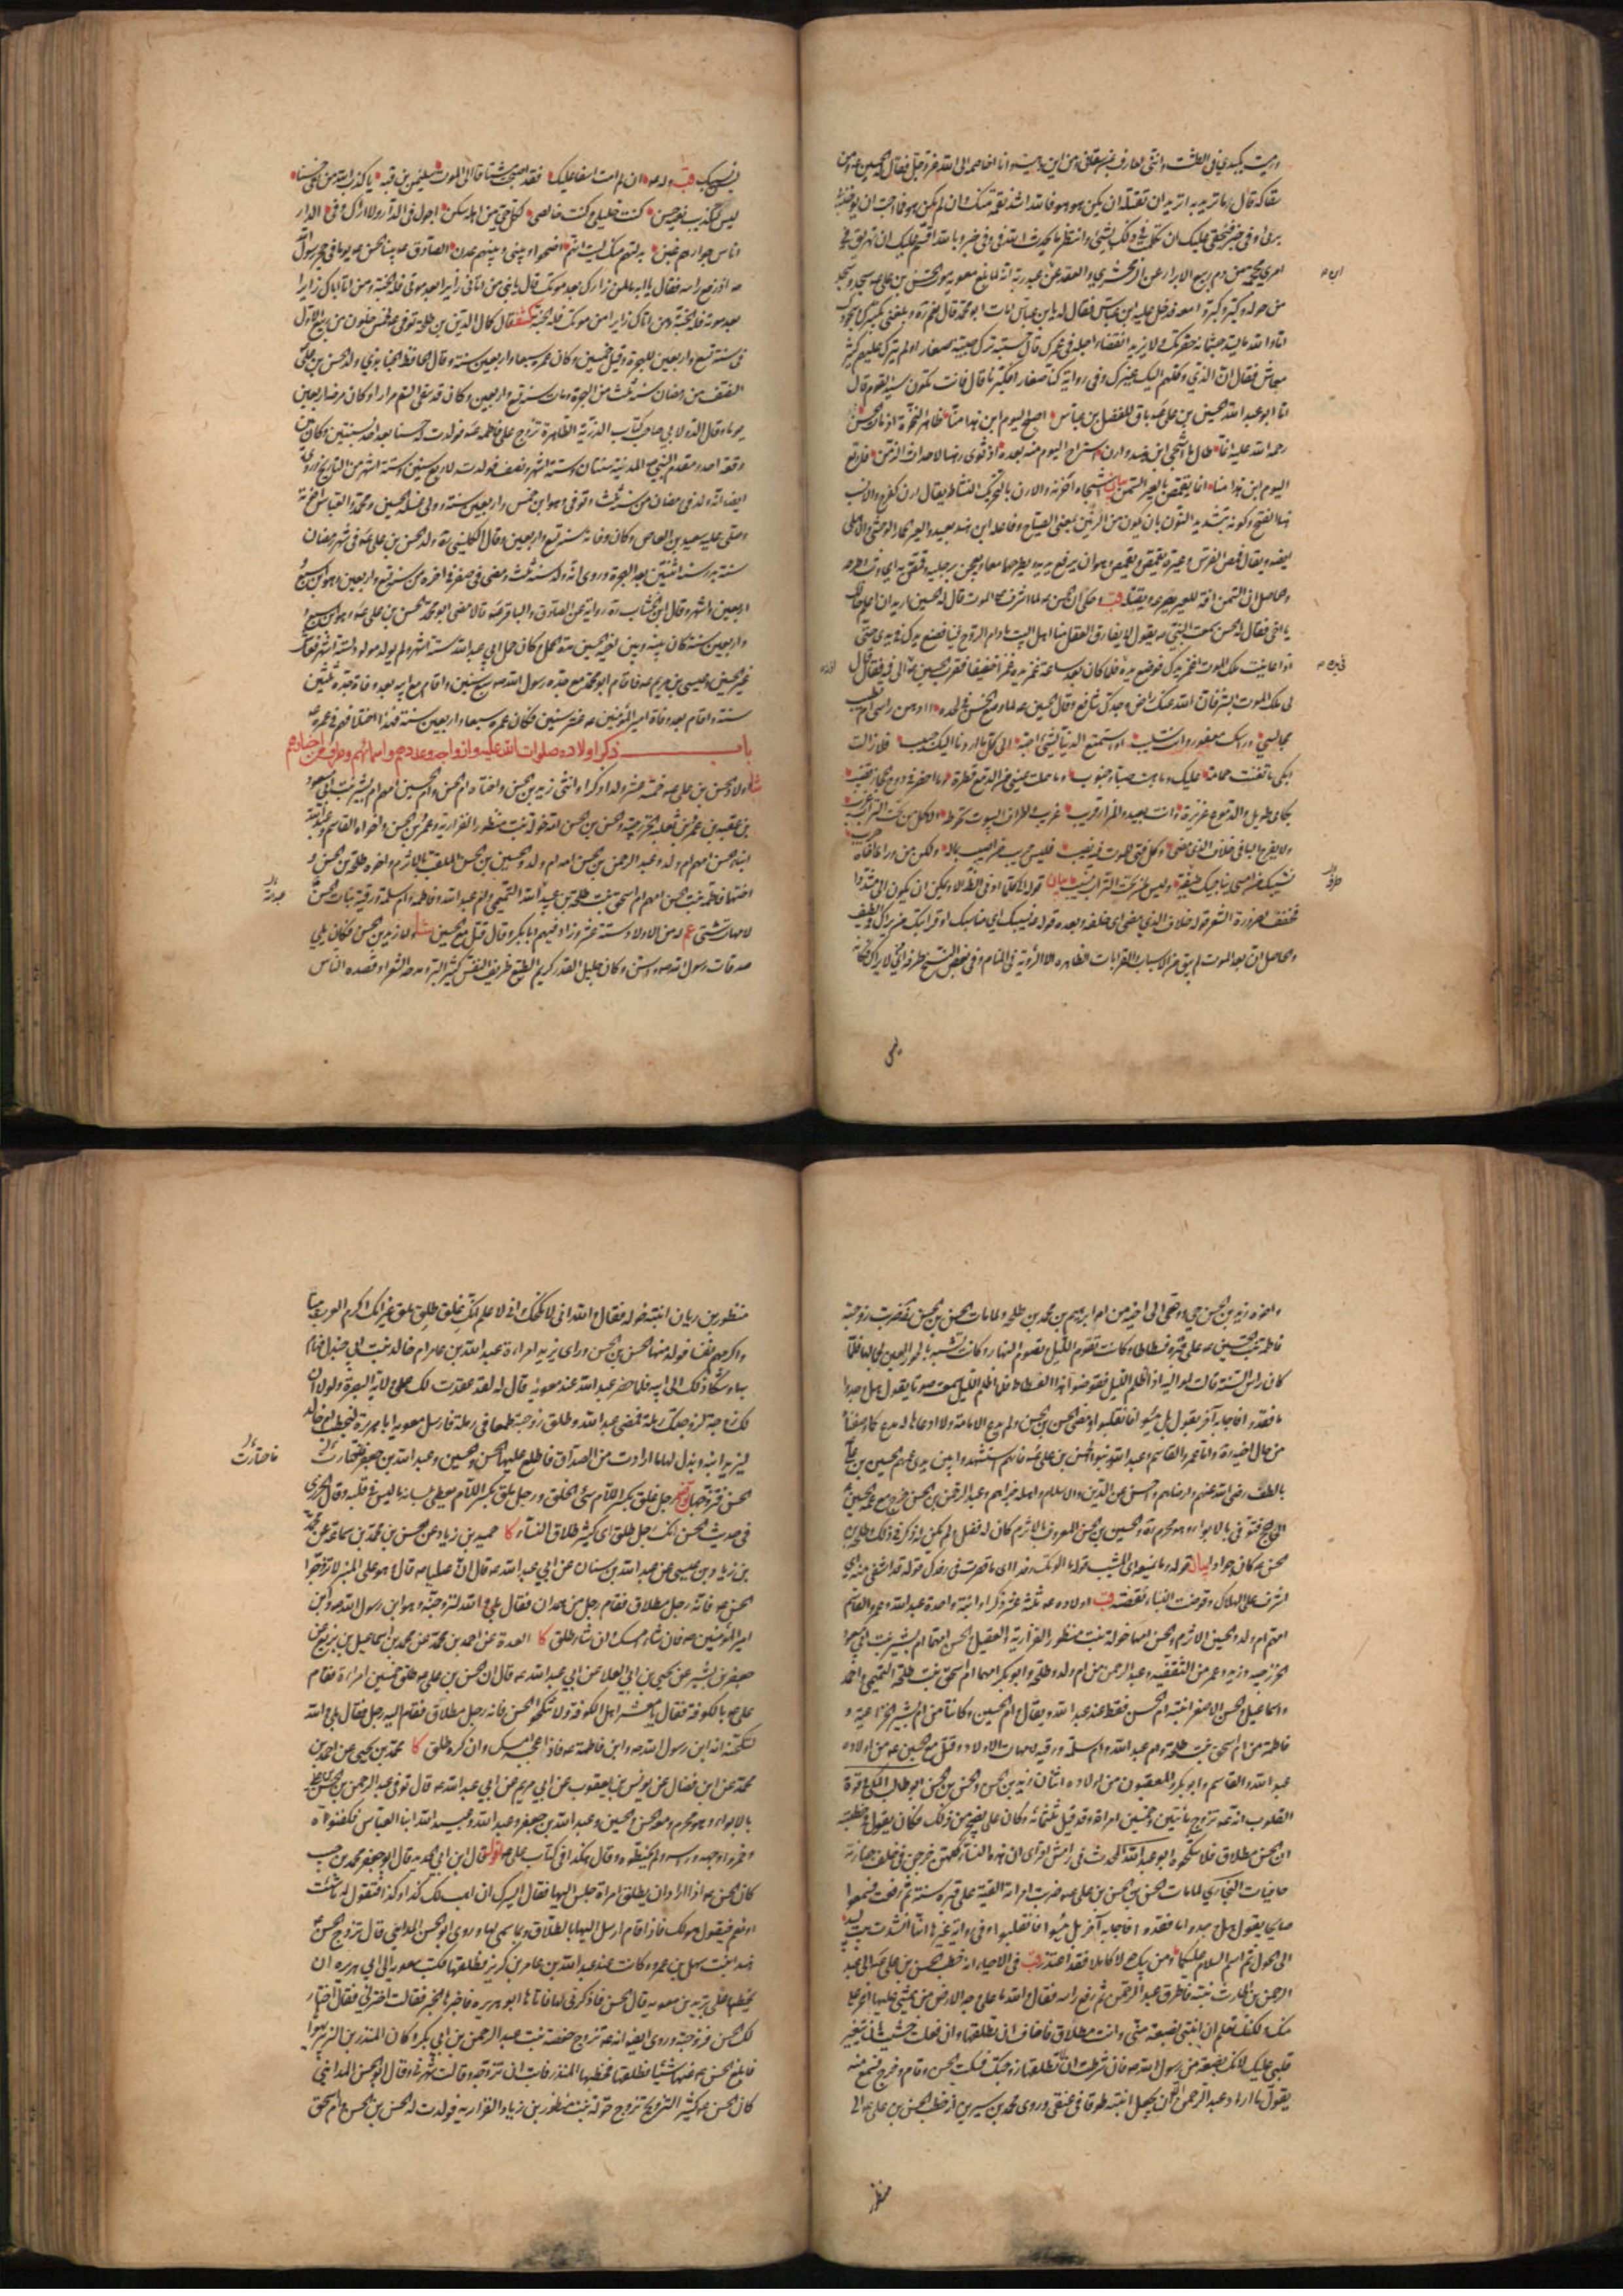 ورميت بكبدي في الطشت وانني لعارف بمن سقاني ومن اين دهيت وانا اخاصمه الى الله عز وجل فقال له الحسين عه ومن
سقاكه قال ما تريد به اتريد ان تقتله ان يكن هو هو فالله اشد نقمة منك وان لم يكن هو فما احب ان يؤخذ بي
برئ وفي خبر فبحقي عليك ان تكلمت في ذلك بشئ وانتظر ما يحدث الله في وفي خبر وبالله اقسم عليك ان تهريق في
امري محجمة من دم ربيع الابرار عن الزمخشري والعقد عن ابن عبد ربه انه لما بلغ معوية موت الحسن بن علي عه سجد وسجد
من حوله وكبر وكبروا معه فدخل عليه ابن عباس فقال له يا ابن عباس امات ابو محمد قال نعم ره وبلغني تكبيرك وسجودك
اما والله ما يسد جثمانه حفرتك ولا يزيد انقضاء اجله في عمرك قال حسبته ترك صبية صغارا ولم يترك عليهم كثير
معاش فقال ان الذي وكلهم اليه غيرك وفي رواية كنا صغارا فكبرنا قال فانت تكون سيد القوم قال
اما ابو عبد الله الحسين بن علي عه باق للفضل بن عباس اصبح اليوم ابن هند امنا ظاهر النخوة اذ مات الحسن
رحمة الله عليه انما طال ما اشجى ابن هند وارن استراح اليوم منه بعده اذ ثوى رهنا لاحداث الزمن فارتع
اليوم ابن هند امنا انما يقمص بالعير السمن بيان شجاه احزنه والارن بالتحريك النشاط يقال ارن كفرح والانسب
هنا الفتح وكونه بتشديد النون بان يكون من الرنين بمعنى الصياح وفاعله ابن هند بعيد والعير الحمار الوحشي والاهلي
ايضا ويقال قمص الفرس وغيره يقمص ويقمص وهو ان يرفع يديه ويطرحهما معا ويعجن برجليه وقمص به اي وثب وطرحه
وحاصل ان السمن آفة للعير يصرعه ويقتله قب وحكي ان الحسن عه لما اشرف على الموت قال له الحسين اريد ان اعلم حالك
يا اخي فقال له الحسن سمعت النبي صه يقول لا يفارق العقل منا اهل البيت ما دام الروح فينا فضع يدك في يدي حتى
اذا عاينت ملك الموت اغمز يدك فوضع يده فلما كان بعد ساعة غمز يده غمزا خفيفا فقرب الحسين عه اذنه الى فيه فقال قال
لي ملك الموت ابشر فان الله عنك راض وجدك شافع وقال الحسين عه لما وضع الحسن في لحده ءادهن راسي ام تطيب
مجالسي وراسك معفور وانت سليب او استمتع الدنيا لشئ احبه الى كل ما ادنا اليك حبيب فلا زلت
ابكي ما تغنت حمامة عليك وما هبت صبا وجنوب وما هملت عيني من الدمع قطرة وما اخضر في دوح الحجاز قضيب
بكائي طويل والدموع غزيرة وانت بعيد والمزار قريب غريب واطراف البيوت تحوطه الا كل من تحت التراب غريب
ولا يفرح الباقي خلاف الذي مضى وكل فتى للموت فيه نصيب فليس حريب من اصيب بماله ولكن من وارى اخاه حريب
نسيبك من امسى يناجيك طيفه وليس لمن تحت التراب نسيب بيان قوله اذ كل ما ادنى الظ الا ويمكن ان يكون الى مشددا
فخفف لضرورة الشعر قوله خلاف الذي مضى اي خلفه وبعده قوله نسيبك اي مناسبك او قرابتك من يراك في الطيف
والحاصل ان بعد الموت لم يبق من الاسباب والقرابات الظاهره الا الرؤية في المنام وفي بعض النسخ طرفه اي لا يراك فكانه
ليس
ليس نسيبك قب وله عه ان لم امت اسفا عليك فقد اصبحت مشتاقا الى الموت سليمن بن قبة يا كذب الله من نعى حسنا
ليس لتكذيب نعيه حسن كنت خليلي وكنت خالصتي لكل حي من اهله سكن اجول في الدار لا اراك وفي الدار
اناس جوارهم غبن بدلتهم منك ليت انهم اضحوا وبيني وبينهم عدن الصادق عه بينا الحسن عه يوما في حجر رسول الله
صه اذ رفع راسه فقال يا ابه ما لمن زارك بعد موتك قال يا بني من اتاني زايرا بعد موتي فله الجنة ومن اتى اباك زايرا
بعد موته فله الجنة ومن اتاك زايرا من بعد موتك فله الجنة كشف قال كمال الدين بن طلحة توفي عه لخمس خلون من ربيع الاول
في سنة تسع واربعين للهجرة وقيل خمسين وكان عمره سبعا واربعين سنة وقال الحافظ الجنابذي ولد الحسن بن علي
النصف من رمضان سنة ثلث من الهجرة ومات سنة تسع واربعين وكان قد سقي السم مرارا وكان مرضه اربعين
يوما وقال الدولابي صاحب كتاب الذرية الطاهرة تزوج علي فاطمه عه فولدت له حسنا بعد احد بسنتين وكان بين
وقعة احد ومقدم النبي صه المدينة سنتان وستة اشهر ونصف فولدته لاربع سنين وستة اشهر من التاريخ وروى
ايضا انه ولد في رمضان من سنة ثلث وتوفي وهو ابن خمس واربعين سنة وولي غسله الحسين ومحمد والعباس اخوته
وصلى عليه سعيد بن العاص وكان وفاته سنة تسع واربعين وقال الكليني ره ولد الحسن بن علي عه في شهر رمضان
سنة بدر سنة اثنتين بعد الهجرة وروى انه ولد سنة ثلث ومضى في صفر في اخره من سنة تسع واربعين وهو ابن سبع
واربعين واشهر وقال ابن الخشاب ره رواية عن الصادق والباقر عه قالا مضى ابو محمد الحسن بن علي عه وهو ابن سبع
واربعين سنة كان بينه وبين اخيه الحسين مدة الحمل كان حمل ابي عبد الله ستة اشهر ولم يولد مولود لستة اشهر فعاش
غير الحسين وعيسى بن مريم عه فاقام ابو محمد مع جده رسول الله صه سبع سنين واقام مع ابيه بعد وفاة جده ثلثين
سنة واقام بعد وفاة امير المؤمنين عه عشر سنين فكان عمره سبعا واربعين سنة فهذا اختلافهم في عمره عه
باب ذكر اولاده صلوات الله عليه وازواجه وعددهم واسمائهم وطرف من اخبارهم
شا اولاد الحسن بن علي عه خمسة عشر ولدا ذكرا وانثى زيد بن الحسن واختاه ام الحسن وام الحسين امهم ام بشير بنت ابي مسعود
بن عقبه بن عمرو بن ثعلبه الخزرجية والحسن بن الحسن امه خولة بنت منظور الفزارية وعمر بن الحسن واخواه القاسم وعبد الله
ابنا الحسن امهم ام ولد وعبد الرحمن بن الحسن امه ام ولد والحسين بن الحسن الملقب بالاثرم واخوه طلحة بن الحسن و
اختهما فاطمة بنت الحسن امهم ام اسحق بنت طلحة بن عبيد الله التيمي وام عبد الله وفاطمه وام سلمة ورقية بنات الحسن
لامهات شتى عم له من الاولاد ستة عشر وزاد فيهم ابا بكر وقال قتل مع الحسين شا واما زيد بن الحسن فكان يلي
صدقات رسول الله صه واسن وكان جليل القدر كريم الطبع ظريف النفس كثير البر ومدحه الشعراء وقصده الناس
واخوه زيد بن الحسن حي ووصى الى اخيه من امه ابراهيم بن محمد بن طلحه ولما مات الحسن بن الحسن ضربت زوجته
فاطمة بنت الحسين عه على قبره فسطاطا وكانت تقوم الليل وتصوم النهار وكانت تشبه بالحور العين لجمالها فلما
كان راس السنة قالت لمواليها اذا اظلم الليل فقوضوا هذا الفسطاط فلما اظلم الليل سمعت صوتا يقول هل وجدوا
ما فقدوا فاجابه آخر يقول بل يئسوا فانقلبوا ومضى الحسن بن الحسن ولم يدع الامامة ولا ادعاها له مدع كما وصفناه
من حال اخيه ره واما عمرو القاسم وعبد الله بنو الحسن بن علي عه فانهم استشهدوا بين يدي عمهم الحسين بن علي
بالطف رضي الله عنهم وارضاهم واحسن عن الدين والاسلام واهله جزاهم وعبد الرحمن بن الحسن خرج مع عمه الحسين
الى الحج فتوفي بالابواء وهو محرم ره والحسين بن الحسن المعروف بالاثرم كان له فضل ولم يكن له ذكر في ذلك وطلحة بن
الحسن عه كان جوادا بيان
اشرف على الهلاك وقوضت البناء نقضته قب اولاده عه ثلثة عشر ذكرا وابنة واحدة عبد الله وعمر والقاسم
امهم ام ولد والحسين الاثرم والحسن امهما خولة بنت منظور الفزارية والعقيل والحسن امهما ام بشير بنت ابي مسعود
الخزرجيه وزيد وعمر من الثقفيه وعبد الرحمن من ام ولد وطلحه وابو بكر امهما ام اسحق بنت طلحة التيمي واحمد
واسماعيل والحسن الاصغر ابنته ام الحسن فقط عند عبد الله ويقال وام الحسين وكانتا من ام بشير الخزاعية و
فاطمة من ام اسحق بنت طلحة وام عبد الله وام سلمة ورقيه لامهات الاولاد وقتل مع الحسين عه من اولاده
عبد الله والقاسم وابو بكر والمعقبون من اولاده اثنان زيد بن الحسن والحسن بن الحسن ابو طالب المكي في قوة
القلوب انه عه تزوج مائتين وخمسين امراة وقد قيل ثلثمائة وكان علي يضجر من ذلك فكان يقول في خطبته
ان الحسن مطلاق فلا تنكحوه ابو عبد الله المحدث في رامش افزاي ان هذه النساء كلهن خرجن في خلف جنازته
حافيات البخاري لما مات الحسن بن الحسن بن علي عه ضربت امراته القبة على قبره سنة ثم رفعت فسمعوا
صايحا يقول هل وجدوا ما فقدوا فاجابه آخر بل يئسوا فانقلبوا وفي رواية غيرها انها انشدت بيت لبيد
الى الحول ثم اسم السلام عليكما ومن يبك حولا كاملا فقد اعتذر قب في الاحياء انه خطب الحسن بن علي عه الى عبد
الرحمن بن الحارث بنته فاطرق عبد الرحمن ثم رفع راسه فقال والله ما على وجه الارض من يمشي عليها اعز علي
منك ولكنك تعلم ان ابنتي بضعة مني وانت مطلاق فاخاف ان تطلقها وان فعلت خشيت ان يتغير
قلبي عليك لانك بضعة من رسول الله صه فان شرطت ان لا تطلقها زوجتك فسكت الحسن وقام وخرج فسمع منه
يقول ما اراد عبد الرحمن الا ان يجعل ابنته طوقا في عنقي وروى محمد بن سيرين انه خطب الحسن بن علي عه الى
منظور
منظور بن ريان ابنته خولة فقال والله اني لانكحك واني لاعلم انك غلق طلق ملق غير انك اكرم العرب بيتا
واكرمهم نفسا فولد منها الحسن بن الحسن وراى يزيد امراة عبد الله بن عامر ام خالد بنت ابي جندل فهام
بها وشكا ذلك الى ابيه فلما حضر عبد الله عند معويه قال له لقد عقدت لك على ولاية البصرة ولولا ان
لك زوجة لزوجتك رملة فمضى عبد الله وطلق زوجته طمعا في رملة فارسل معويه ابا هريرة ليخطب ام خالد
ليزيد ابنه وبذل لها ما ارادت من الصداق فاطلع عليها الحسن والحسين وعبد الله بن جعفر فاختارت
الحسن فتزوجها توضيح رجل غلق بكسر اللام سئ الخلق ورجل ملق بكسر اللام يعطي بلسانه ما ليس في قلبه وقال الجزري
في حديث الحسن انك رجل طلق اي كثير طلاق النساء كا حميد بن زياد عن الحسن بن محمد بن سماعة عن محمد
بن زياد بن عيسى عن عبد الله بن سنان عن ابي عبد الله عه قال ان عليا عه قال وهو على المنبر لا تزوجوا
الحسن عه فانه رجل مطلاق فقام رجل من همدان فقال بلى والله لنزوجنه وهو ابن رسول الله صه وابن
امير المؤمنين عه فان شاء امسك وان شاء طلق كا العدة عن احمد بن محمد عن محمد بن اسماعيل بن بزيع عن
جعفر بن بشير عن يحيى بن ابي العلا عن ابي عبد الله عه قال ان الحسن بن علي عه طلق خمسين امراءة فقام
علي عه بالكوفة فقال يا معشر اهل الكوفة لا تنكحوا الحسن فانه رجل مطلاق فقام اليه رجل فقال بلى والله
لننكحنه انه ابن رسول الله صه وابن فاطمه عه فاذا اعجبه امسك وان كره طلق كا محمد بن يحيى عن احمد بن
محمد عن ابن فضال عن يونس بن يعقوب عن ابي مريم عن ابي عبد الله عه قال توفي عبد الرحمن بن الحسن بن علي
بالابواء وهو محرم ومعه الحسن والحسين وعبد الله بن جعفر وعبد الله وعبيد الله ابنا العباس فكفنوه
وخمروا وجهه وراسه ولم يحنطوه وقال هكذا في كتاب علي عه اقول قال ابن ابي الحديد قال ابو جعفر محمد بن حبيب
كان الحسن عه اذا اراد ان يطلق امراة جلس اليها فقال ايسرك ان اهب لك كذا وكذا فتقول له ما شئت
او نعم فيقول هو لك فاذا قام ارسل اليها بالطلاق وبما سمى لها وروى ابو الحسن المدايني قال تزوج الحسن
هند بنت سهيل بن عمرو وكانت عند عبد الله بن عامر بن كريز فطلقها فكتب معويه الى ابي هريره ان
يخطبها على يزيد بن معويه قال الحسن فاذكرني لها فاتاها ابو هريره فاخبرها الخبر فقالت اختر لي فقال اختار
لك الحسن فزوجته وروى ايضا انه عه تزوج حفصة بنت عبد الرحمن بن ابي بكر وكان المنذر بن الزبير يهواها
فابلغ الحسن عه عنها شيئا فطلقها فخطبها المنذر فابت ان تزوجه وقالت شهرني وقال ابو الحسن المدائني
كان الحسن عه كثير التزويج تزوج خولة بنت منظور بن زياد الفزاريه فولدت له الحسن بن الحسن وام اسحق